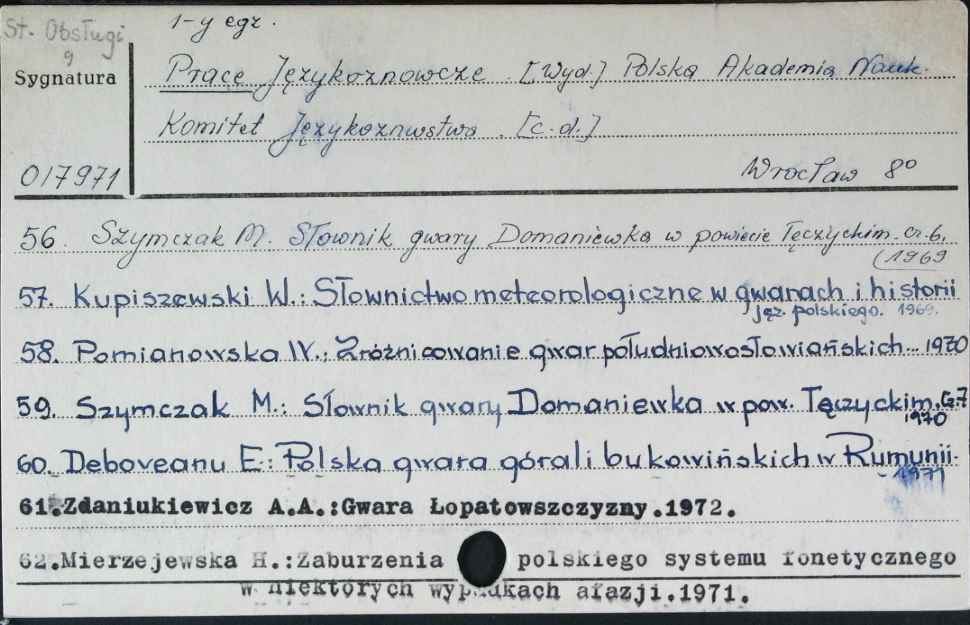 St. Obsługi
1-y egz.
g
Sygnatura
Prace Językoznawcze . [Wyd.] Polska Akademia Nauk.
Komitet Językoznwstwa . [c.d.]
017971
Wrocław 8º
56. Szymczak M. Słownik gwary Domaniewka w powiecie Łęczyckim. cz. 6,
(1969
57. Kupiszewski W.: Słownictwo meteorologiczne w gwarach i historii
jęz. polskiego. 1969.
58. Pomianowska W.: Zróżnicowanie gwar południowosłowiańskich... 1970
59. Szymczak M.: Słownik gwary Domaniewka w pow. Łęczyckim. Cz7
1970
60. Deboveanu E: Polska gwara górali bukowińskich w Rumunii.
1971
61. Zdaniukiewicz A.A.:Gwara Łopatowszczyzny.1972.
62.Mierzejewska H.:Zaburzenia polskiego systemu fonetycznego
w niektórych wypadkach afazji.1971.